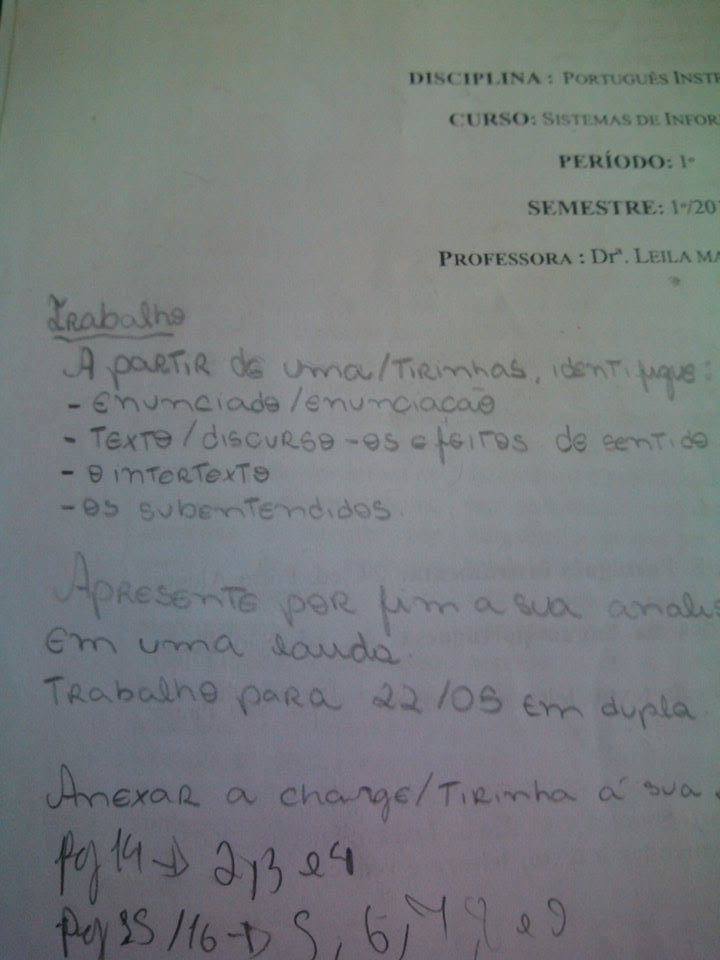 DISCIPLINA : PORTUGUÊS INSTR
CURSO: SISTEMAS DE INFOR
PERÍODO: 1º
SEMESTRE: 1º/20
PROFESSORA : Drª. LEILA MA
Trabalho
A partir de uma/Tirinhas, identifique:
- enunciado/enunciação
- Texto/discurso - os efeitos de sentido
- o intertexto
- os subentendidos.
Apresente por fim a sua analis
Em uma lauda.
Trabalho para 22/05 Em dupla
Anexar a charge/Tirinha á sua
Pg 14 → 2,3 e 4
Pg 15/16 → 5, 6, 7, 8 e 9